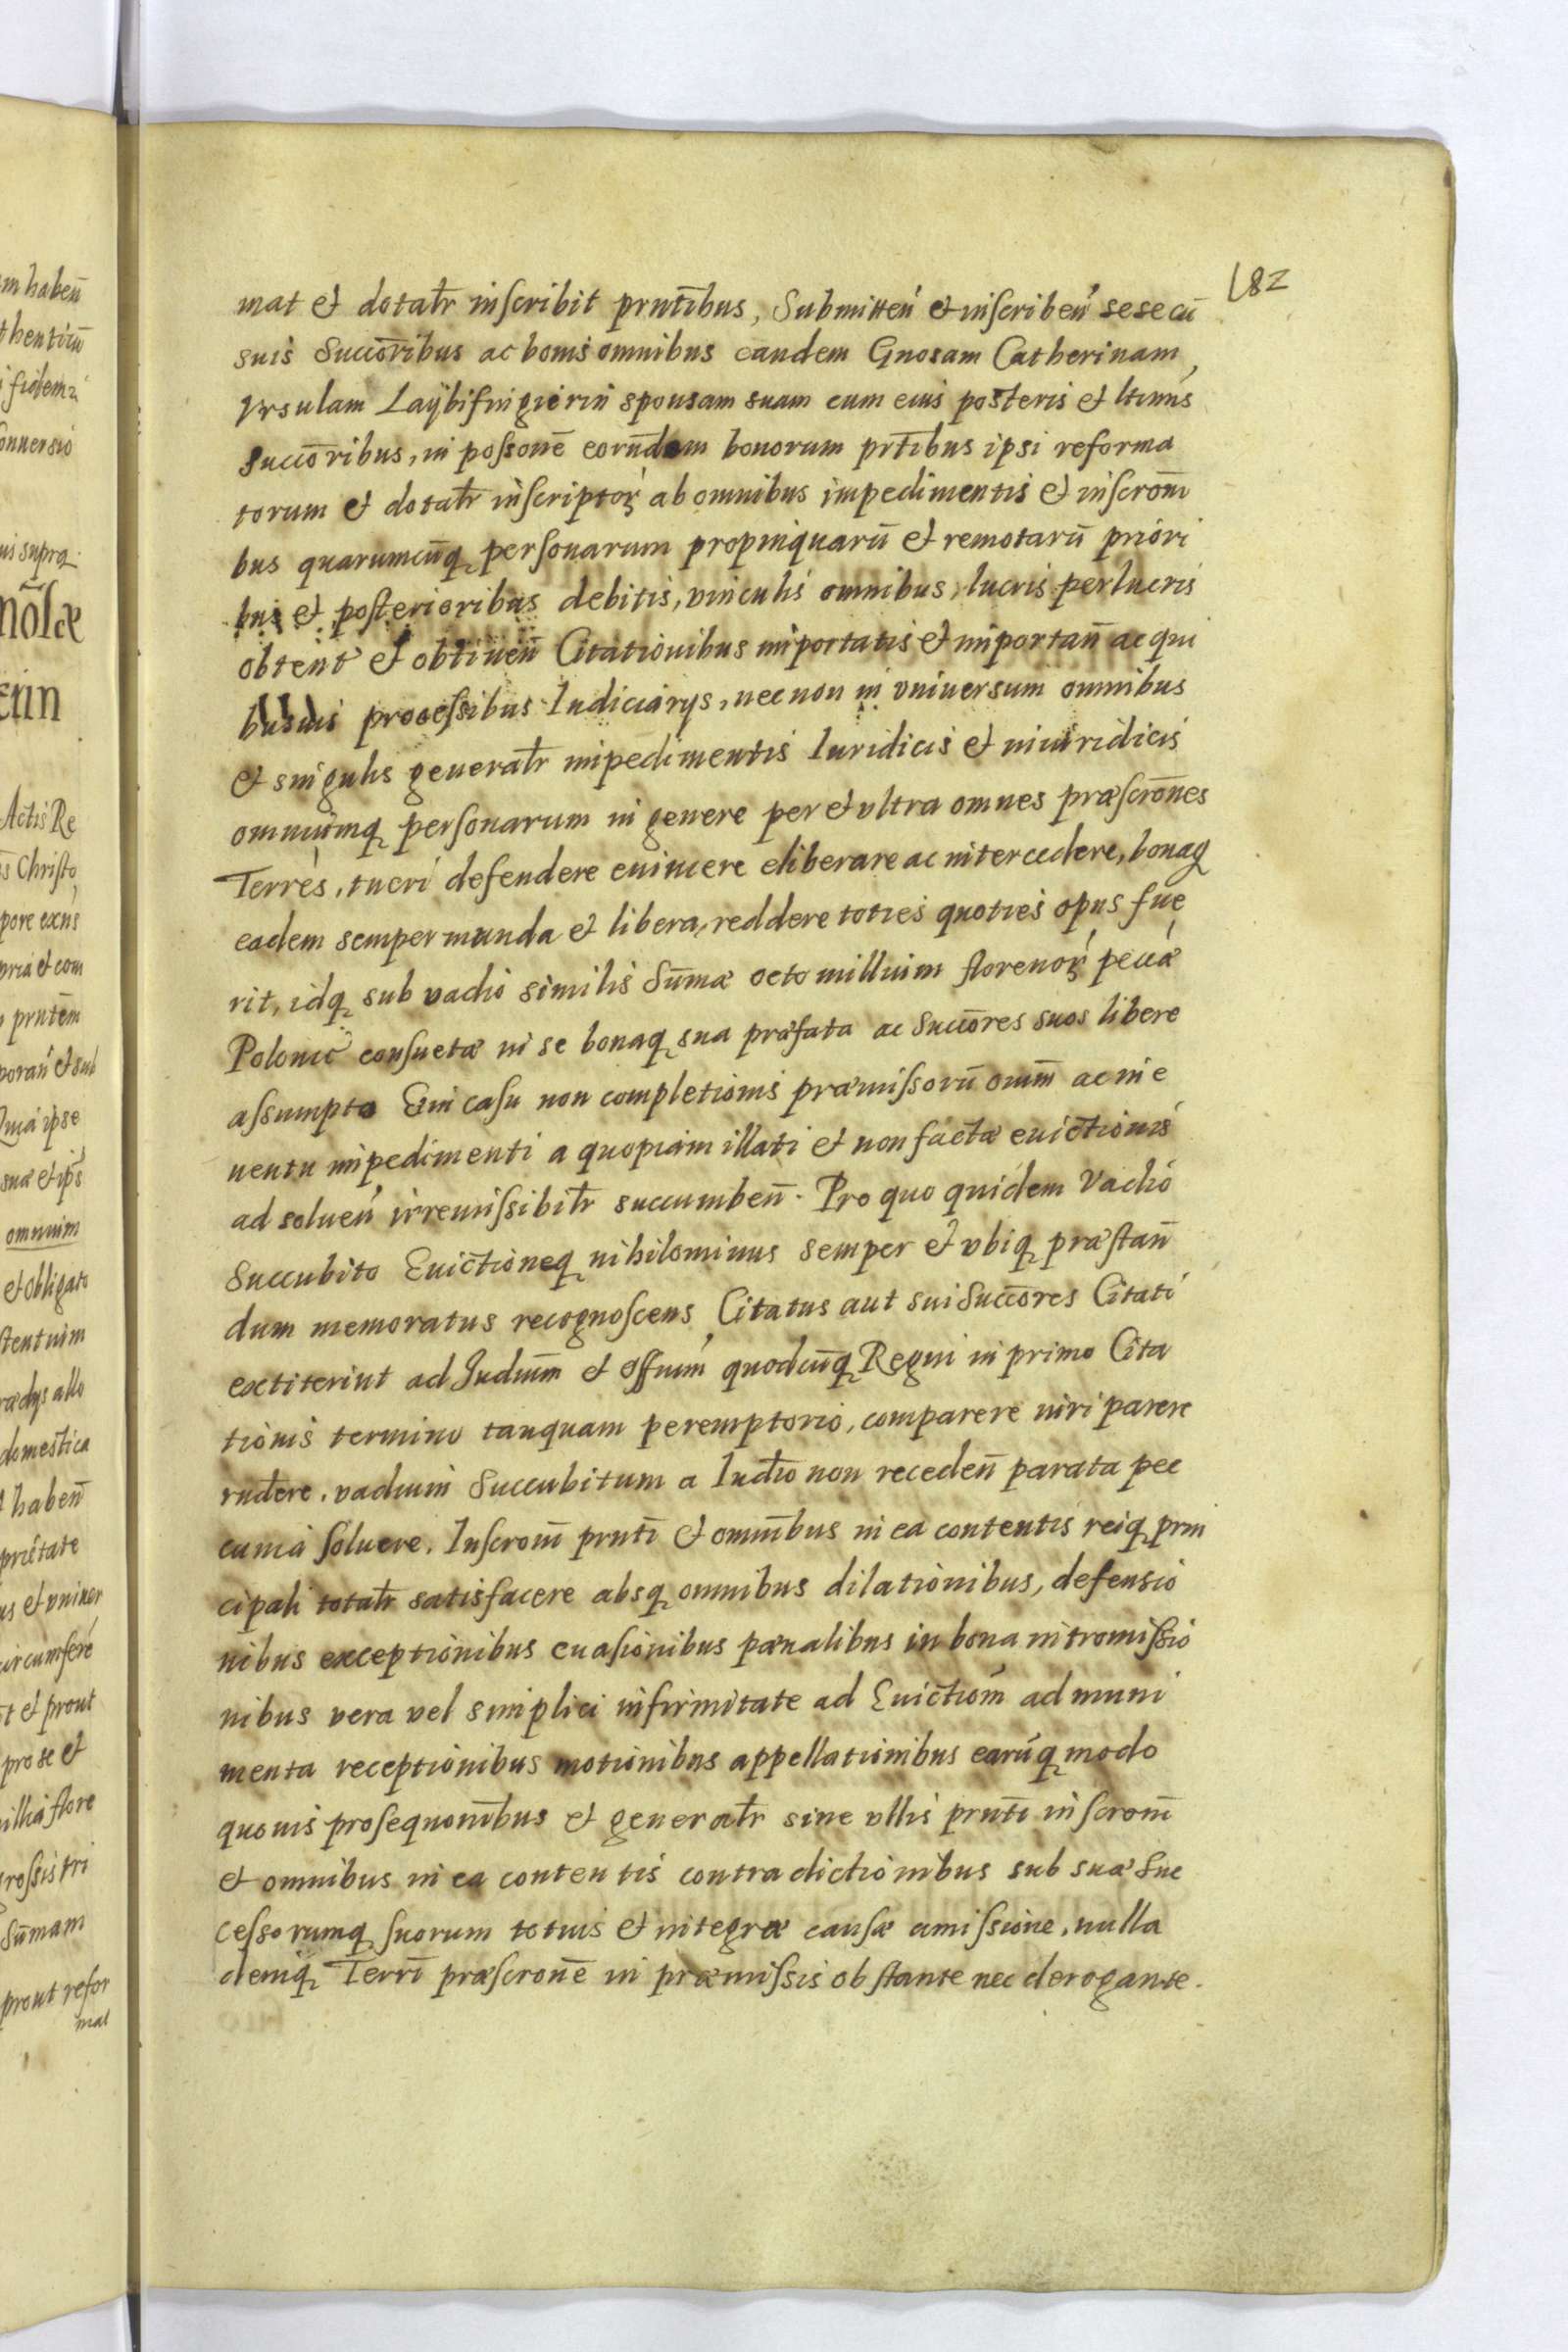 182
mat et dotatr̃ inscribit prntĩbus, Submitteń et inscribeń sese cũ
suis Succõribus ac bonis omnibus eandem Gnosam Catherinam
Vrsulam Laÿbifingierin sponsam suam cum eius posteris et ltimis
succõribus, in possonẽ eorũdem bonorum prtĩbus ipsi reforma
torum et dotatr̃ inscriptoꝝ ab omnibus impedimentis et inscrom̃
bus quarumcũqꝫ personarum propinquarũ et remotarũ priori
bus et posterioribus debitis, vinculis omnibus, lucris perlucris
obtent' et obtineñ Citationibus importatis et importañ ac qui
busuis processibus Iudiciarijs, nec non in vniuersum omnibus
et singulis generatr̃ impedimentis Iuridicis et iniuridicis
omniumqꝫ personarum in genere per et vltra omnes præscrõnes
Terrés, tueri defendere euincere eliberare ac intercedere, bonaqꝫ
eadem semper munda et libera, reddere toties quoties opus fue
rit, idqꝫ sub vadio similis Sum̃æ octo millium florenoꝝ peccæ
Polonic' consuetæ in se bonaqꝫ sua præfata ac Succõres suos libere
assumpto Et in casu non completionis præmissorũ omm̃ ac in e
uentu impedimenti a quopiam illati et non factæ euictionis
ad solueń irremissibilr̃ succumbeñ. Pro quo quidem Vadio
Succubito Euictioneqꝫ nihilominus semper et vbiqꝫ præstañ
dum memoratus recognoscens Citatus aut sui Succõres Citati
extiterint ad Judium̃ et Offiuḿ quodcũqꝫ Regni in primo Cita
tionis termino tanquam peremptorio, comparere iuri parere
rndẽre, vadium Succubitum a Iudio non recedeñ parata pec
cunia soluere. Inscrom̃ prntĩ et omnĩbus in ea contentis reiqꝫ prin
cipali totatr̃ satisfacere absqꝫ omnibus dilationibus, defensio
nibus exceptionibus euasionibus pænalibus in bona intromissio
nibus vera vel simplici infirmitate ad Euictiom̃ ad muni
menta receptionibus motionibus appellationibus earũqꝫ modo
quouis prosequonĩbus et generatr̃ sine vllis prntĩ inscrom̃
et omnibus in ea contentis contradictionibus sub suæ Suc
cessorumqꝫ suorum totius et integræ causæ amissione, nulla
deniqꝫ Terrĩ præscronẽ in præmissis obstante nec derogante.